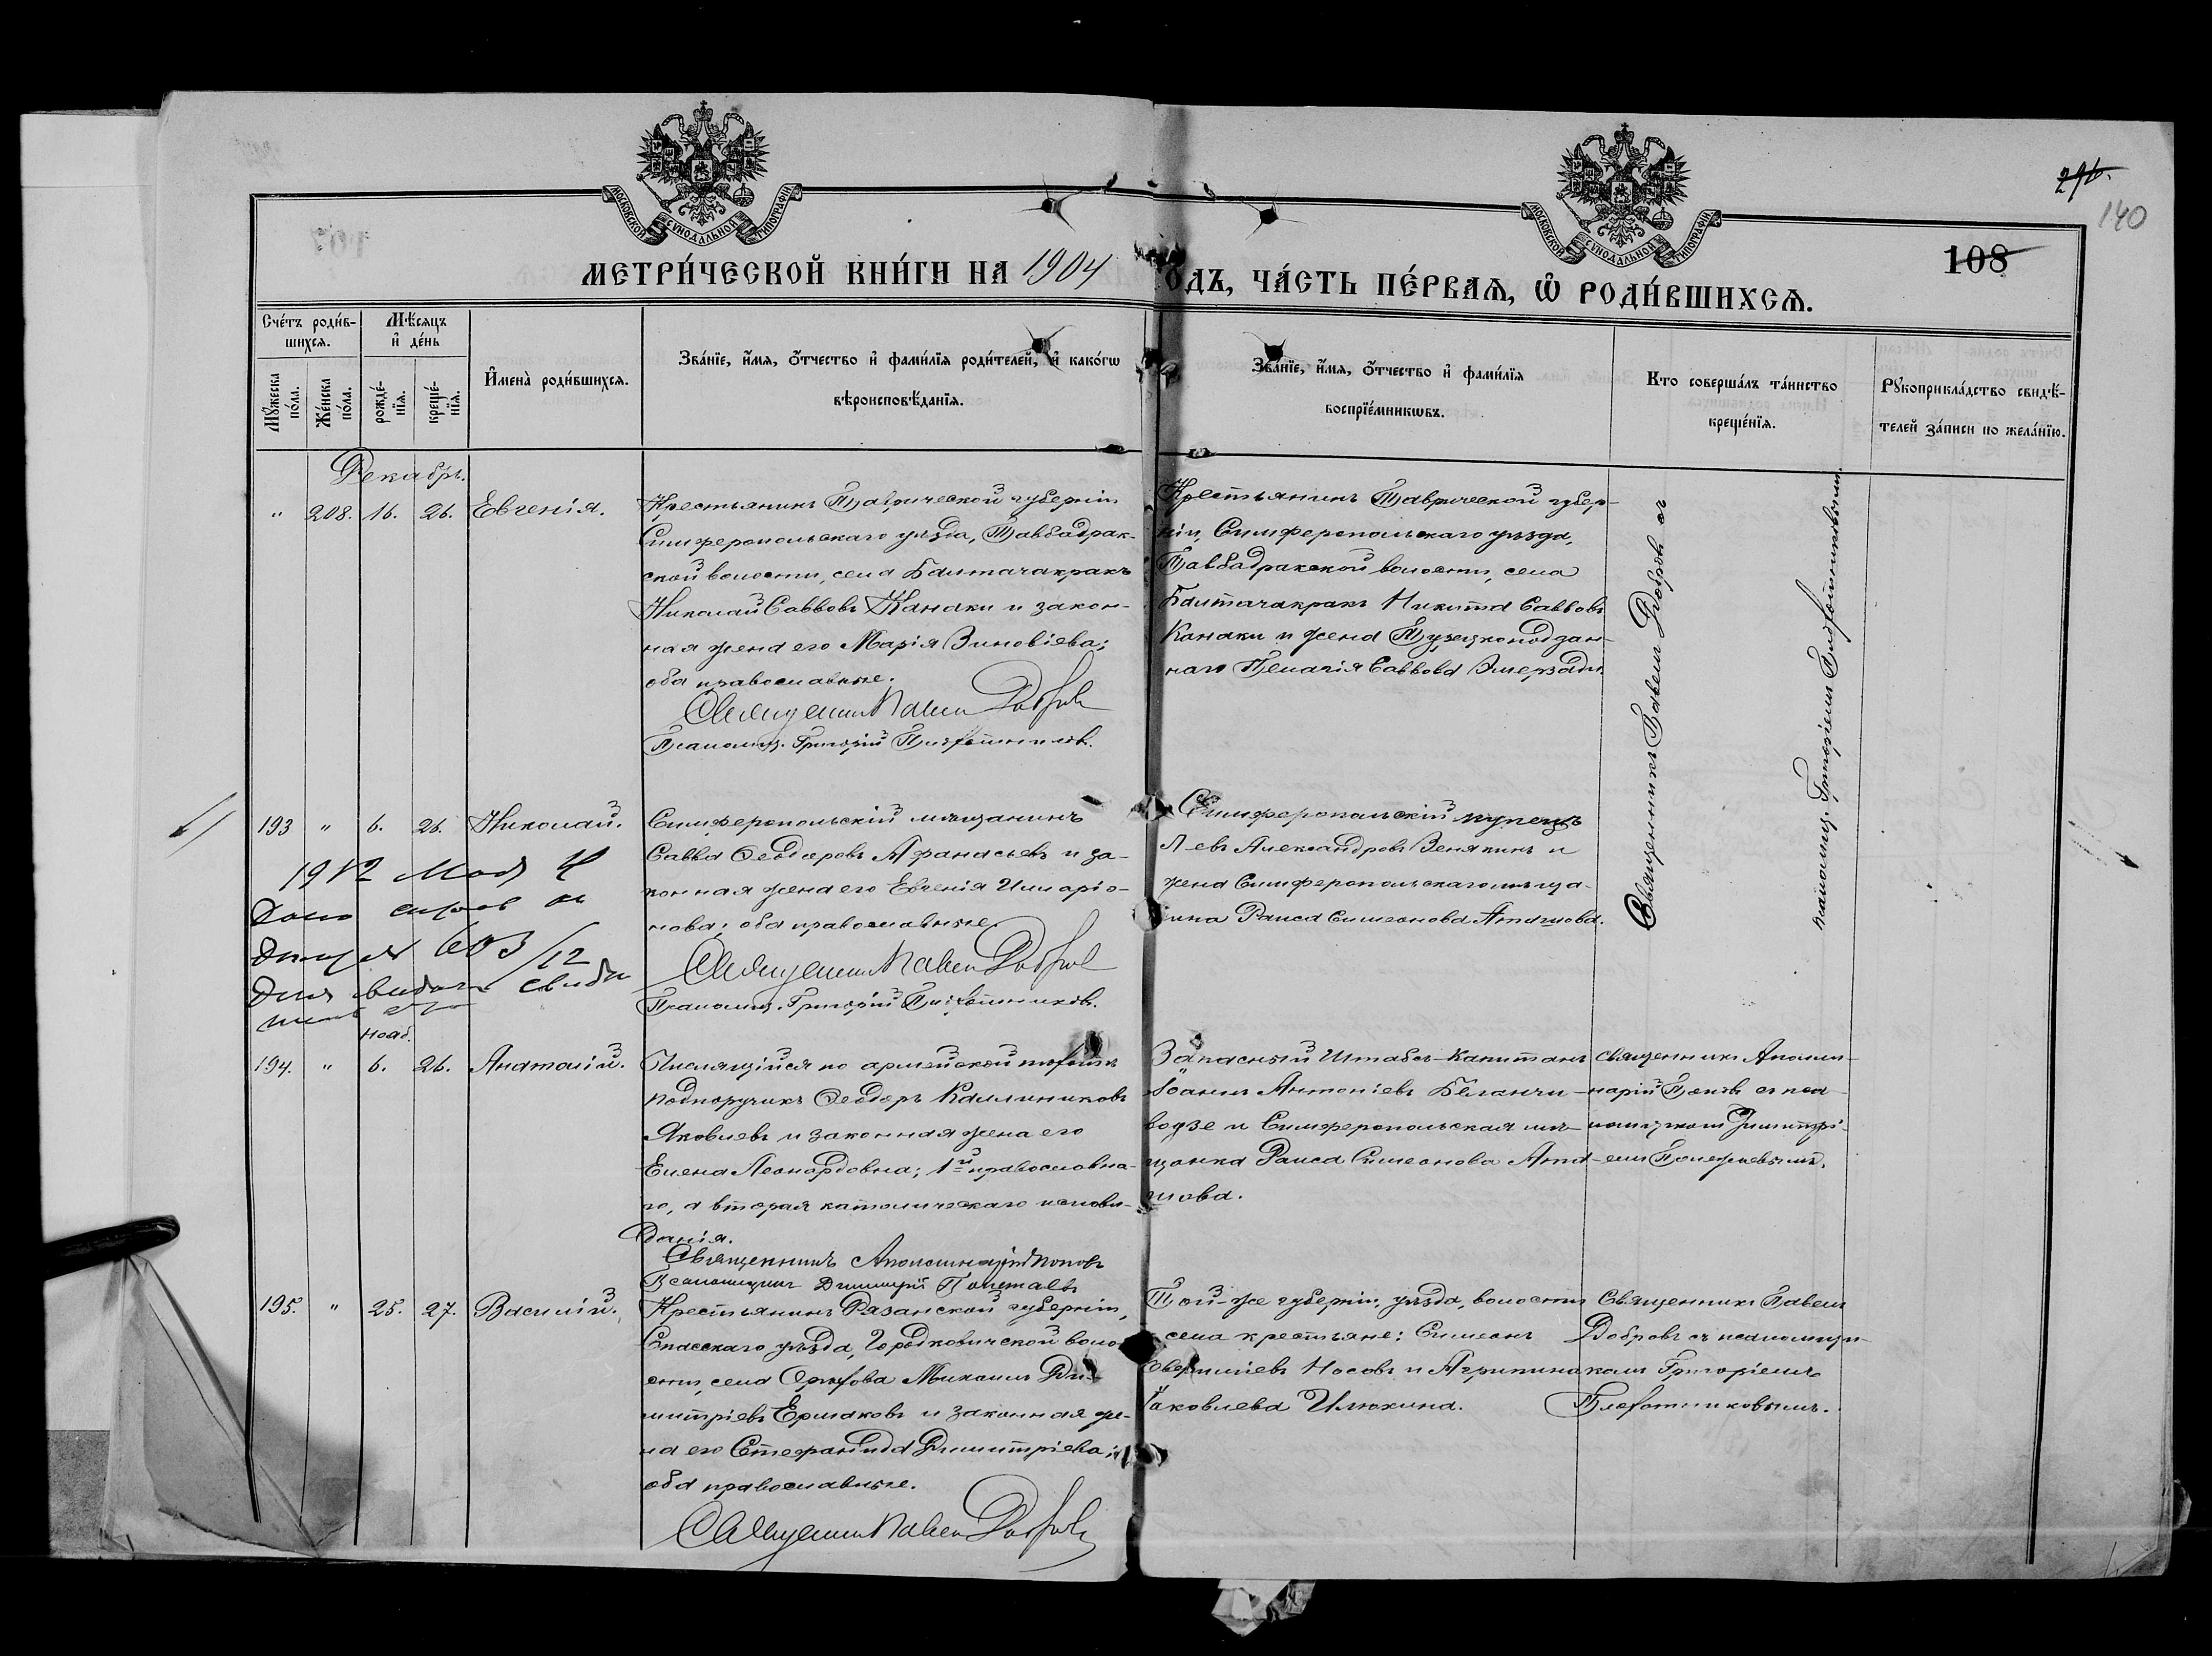 МОСКОВСКОЙ СУНОДАЛЬНОЙ ТИПОГРАФІИ
МОСКОВСКОЙ СУНОДАЛЬНОЙ ТИПОГРАФІИ
140
108
МЕТРИ́ЧЕСКОЙ КНИ́ГИ НА 1904
ОДЪ, ЧА́СТЬ ПЕ́РВАѦ, Ѽ РОДИ́ВШИХСѦ.
Сче́тъ роди́в-
шихсѧ.
Мѣ́сѧцъ
и҆ де́нь
Мꙋ́жеска по́ла.
Же́нска по́ла.
рожде́-
нїѧ.
креще́-
нїѧ.
И҆мена̀ роди́вшихсѧ.
Зва́нїе, и҆́мѧ, ѻ҆́тчество и҆ фами́лїѧ роди́телей, и҆ како́гѡ
вѣроисповѣ́данїѧ.
Зва́нїе, и҆́мѧ, ѻ҆́тчество и҆ фами́лїѧ
воспрїе́мникѡвъ.
Кто соверша́лъ та́инство
креще́нїѧ.
Рꙋкоприкла́дство свидѣ́-
телей за́писи по жела́нїю.
Декабрь.
" 208. 16. 26. Евгенія.
Крестьянинъ Таврической губерніи
Симферопольскаго уѣзда, Тавбадрак-
ской волости, села Балтачакракъ
Николай Саввовъ Канаки и закон-
ная жена его Марія Зиновіева;
оба православные.
Священникъ Павелъ Добровъ
Псаломщ. Григорій
Крестьянинъ Таврической губер-
ніи, Симферопольскаго уѣзда,
Тавбадракской волости, села
Балтачакракъ Никита Саввовъ
Канаки и жена Турецкоподдан-
наго Пелагія Саввова
Священникъ Павелъ Добровъ съ
псаломщ. Григоріемъ
193 " 6. 26. Николай.
Симферопольскій мѣщанинъ
Савва Ѳеодоровъ Афанасьевъ и за-
конная жена его Евгенія Илларіо-
нова; оба православные
Священникъ Павелъ Добровъ
Псаломщ. Григорій
Симферопольскій купецъ
Левъ Александровъ Зенякинъ и
жена Симферопольскаго мѣща-
нина Раиса Симеонова
1912
603/12
Для выдачи
нояб.
194. " 6. 26. Анатолій.
Числящійся по армейской пѣхотѣ
подпоручикъ Ѳеодоръ Каллиниковъ
Яковлевъ и законная жена его
Елена Леонардовна; 1й православна-
го, а вторая католическаго исповѣ-
данія.
Священникъ Аполлинарій Поповъ
Псаломщикъ Димитрій
Запасный Штабсъ-Капитанъ
Іоаннъ Антоніевъ
и Симферопольская мѣ-
щанка Раиса Симеонова
Священникъ Аполли-
нарій Поповъ съ пса-
ломщикомъ Димитрі-
емъ
195. " 25. 27. Василій.
Крестьянинъ Рязанской губерніи,
Спасскаго уѣзда, Городковической воло-
сти, села Михаилъ Ди-
митріевъ Ермаковъ и законная же-
на его Стефанида Димитріева;
оба православные.
Священникъ Павелъ Добровъ
Той-же губерніи, уѣзда, волости
села крестьяне: Симеонъ
Носовъ и Агрипина
Іаковлева Илюхина.
Священникъ Павелъ
Добровъ съ псаломщи-
комъ Григоріемъ